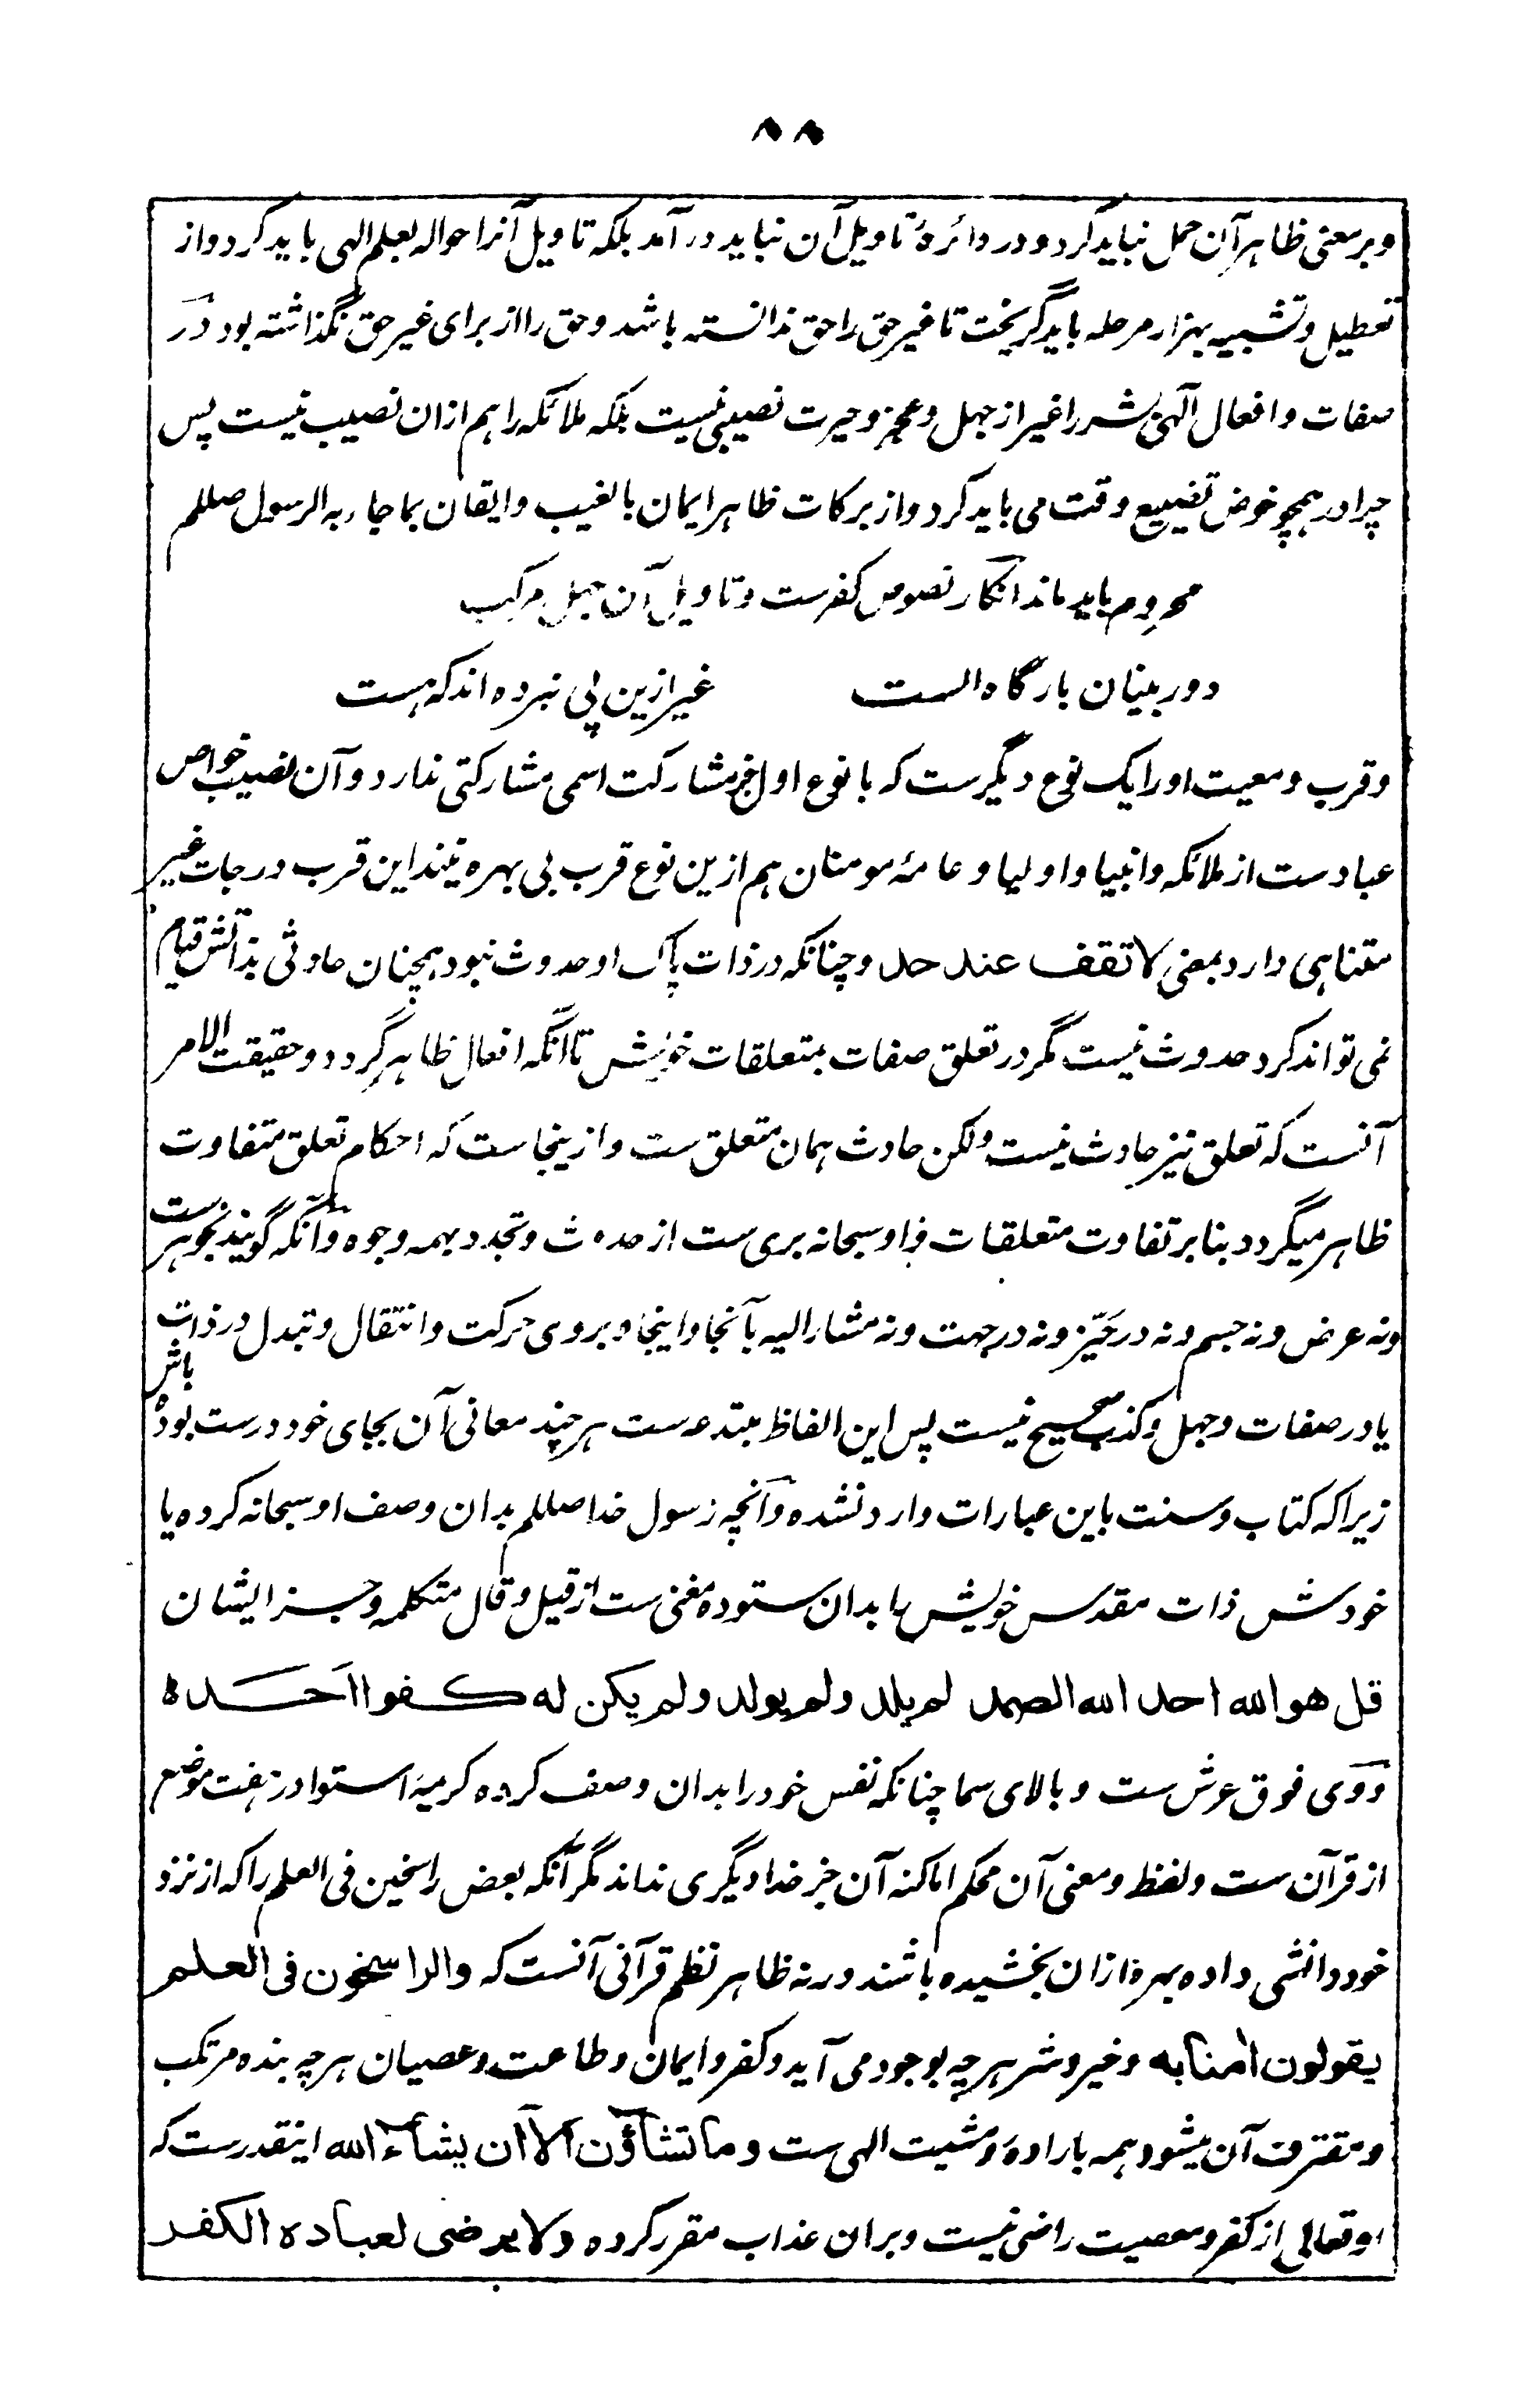 ۸۸
و بر معنی ظاهر آن حمل نباید کرد و در دائرهٔ تاویل آن نباید در آمد بلکه تاویل آنرا حواله بعلم الهی باید کرد و از
تعطیل و تشبیه بهزار مرحله باید گریخت تا غیر حق را حق ندانسته باشد و حق را از برای غیر حق نگذاشته بود در
صفات و افعال آلهی بشر را غیر از جهل و عجز و حیرت نصیبی نیست بلکه ملائکه را هم ازان نصیب نیست پس
چرا در همچو خوض تضییع وقت می باید کرد و از برکات ظاهر ایمان بالغیب و ایقان بما جاء به الرسول صللم
محروم باید ماند انکار نصوص کفرست و تاویل آن جهل مرکب
دور بینان بارگاه الست غیر ازین پی نبرده اند که هست
و قرب و معیت او را یک نوع دیگرست که با نوع اول جز مشارکت اسمی مشارکتی ندارد و آن نصیب خواص
عبادست از ملائکه و انبیا و اولیا و عامهٔ مومنان هم ازین نوع قرب بی بهره نیند این قرب درجات غیر
متناهی دارد بمعنی لا تقف عند حد و چنانکه در ذات پاک او حدوث نبود همچنان حادثی بذاتش قیام
نمی تواند کرد حدوث نیست مگر در تعلق صفات بمتعلقات خویش تا آنکه افعال ظاهر گردد و حقیقت الامر
آنست که تعلق نیز حادث نیست و لکن حادث همان متعلق ست و ازینجاست که احکام تعلق متفاوت
ظاهر میگردد بنا بر تفاوت متعلقات و او سبحانه بری ست از حدوث و تجدد بهمه وجوه و آنکه گویند نه جوهر ست
و نه عرض و نه جسم و نه در حَیّز و نه در جهت و نه مشار الیه بآنجا و اینجا و بروی حرکت و انتقال و تبدل در ذات
یا در صفات و جهل و کذب صحیح نیست پس این الفاظ مبتدعه ست هر چند معانی آن بجای خود درست بوده باشد
زیرا که کتاب و سنت باین عبارات وارد نشده و آنچه رسول خدا صللم بدان وصف او سبحانه کرده یا
خودش ذات مقدس خویش را بدان ستوده مغنی ست از قیل و قال متکلمه و جز ایشان
قل هو الله احد الله الصمد لم یلد ولم یولد ولم یکن له کفوا اَحَد ه
و وی فوق عرش ست و بالای سما چنانکه نفس خود را بدان وصف کرده کریمهٔ استوا در هفت موضع
از قرآن ست و لفظ و معنی آن محکم اما کنه آن جز خدا دیگری نداند مگر آنکه بعض راسخین فی العلم را که از نزد
خود دانشی داده بهره ازان بخشیده باشند ورنه ظاهر نظم قرآنی آنست که والراسخون فی العلم
یقولون اٰمنا به و خیر و شر هر چه بوجود می آید و کفر و ایمان و طاعت و عصیان هر چه بنده مرتکب
و مقترف آن میشود همه باراده و مشیت الهی ست و ما تشآؤن الآ ان یشآء الله اینقدر ست که
او تعالی از کفر و معصیت راضی نیست و بران عذاب مقرر کرده ولا یرضی لعباده الکفر